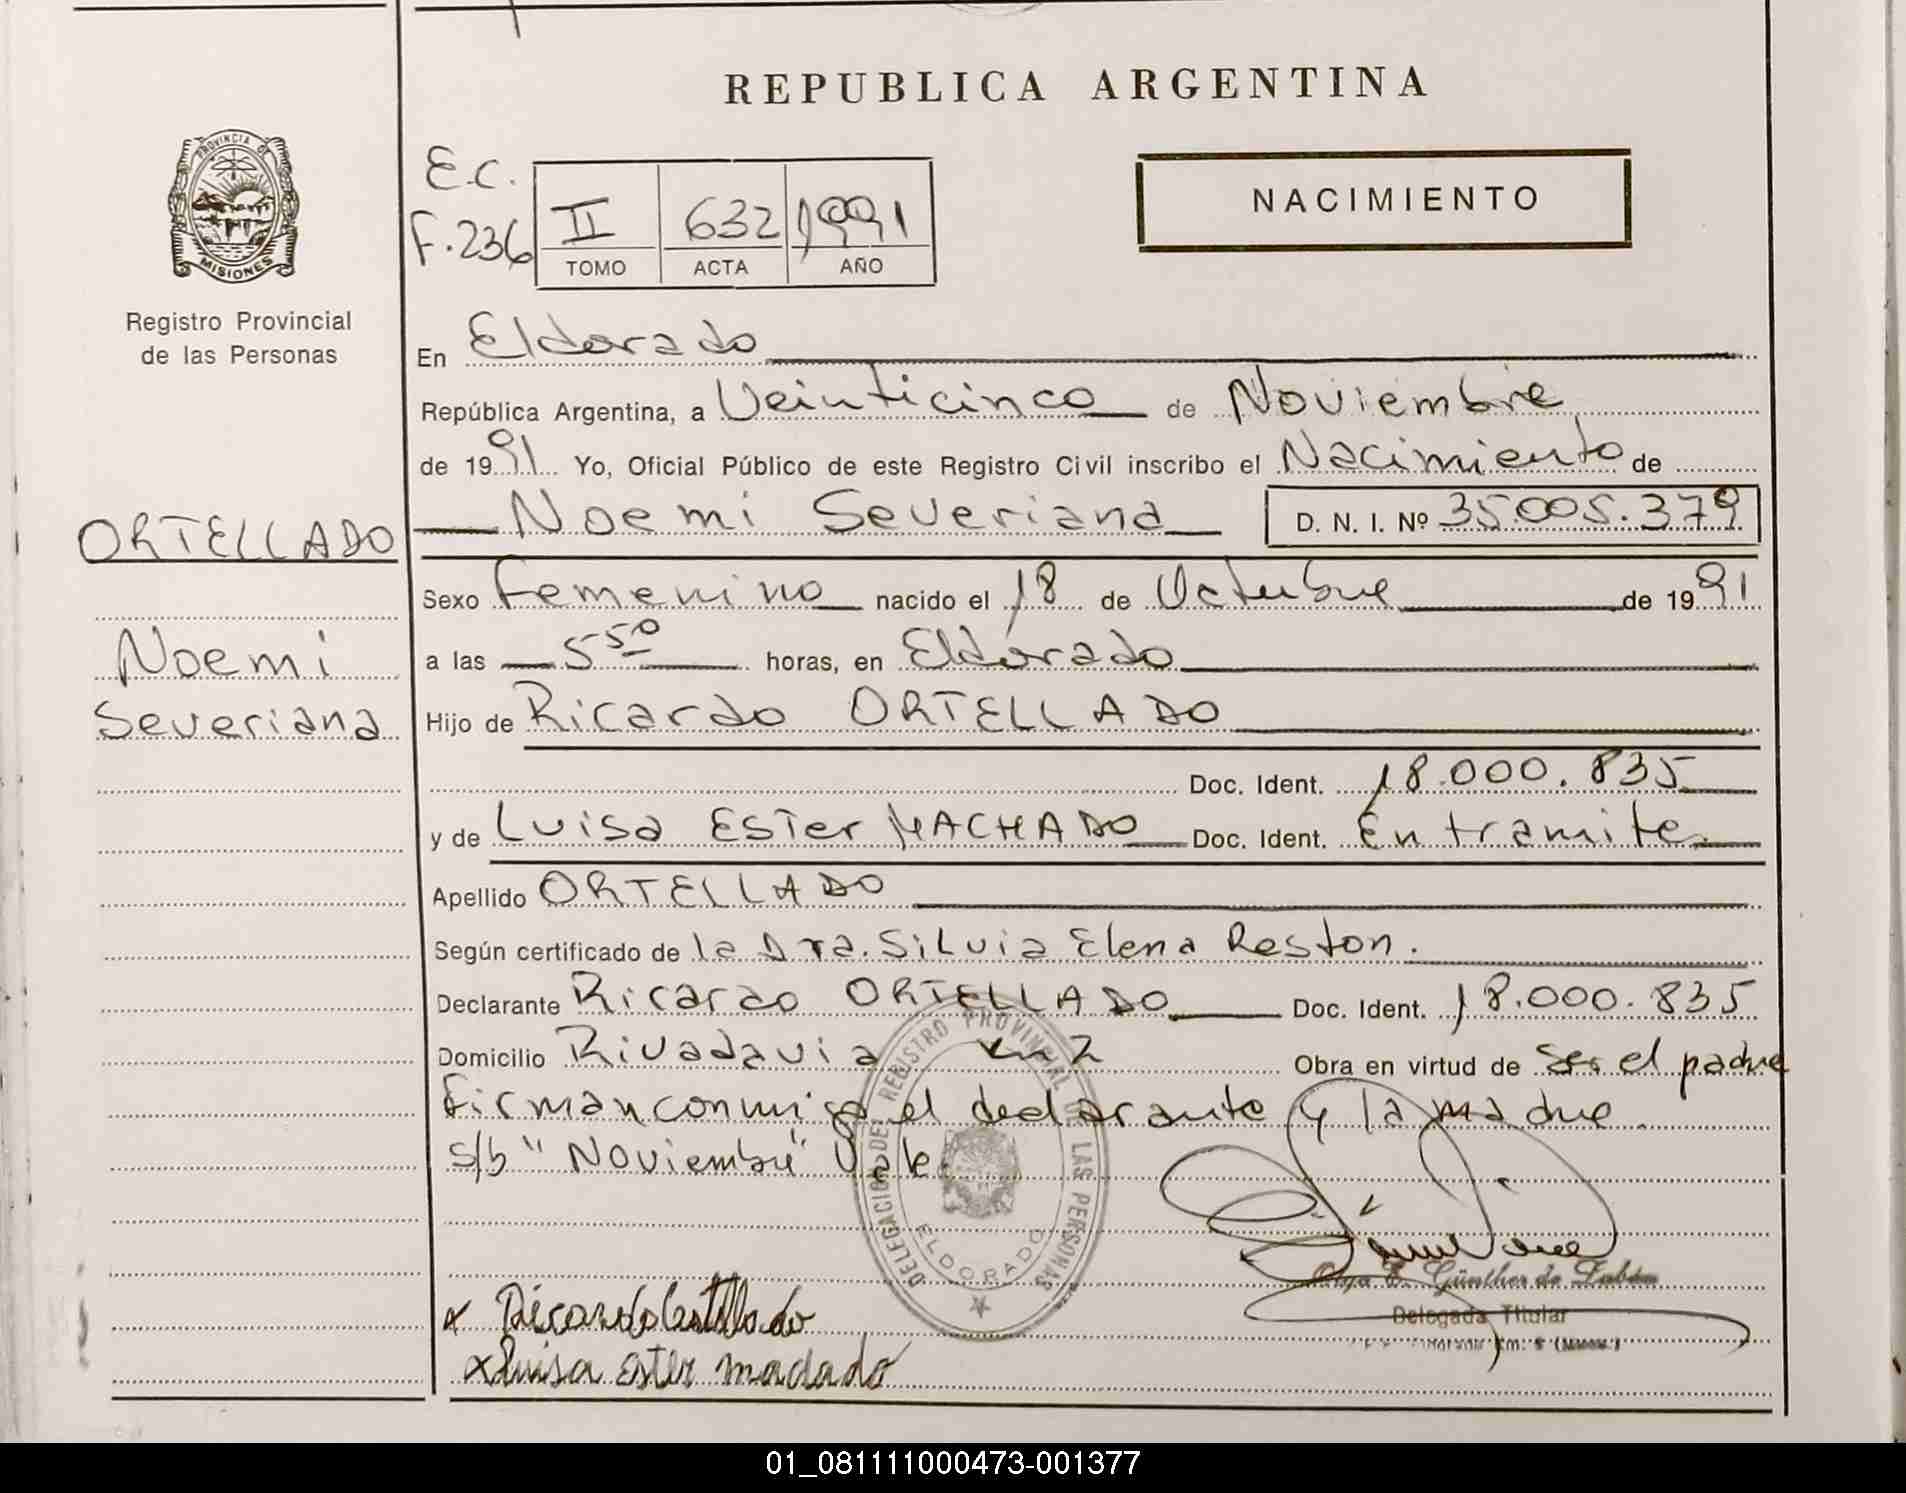 REPUBLICA ARGENTINA
PROVINCIA DE
MISIONES
Registro Provincial
de las Personas
E.C.
F.236
II 632 1991
TOMO ACTA AÑO
NACIMIENTO
En Eldorado
República Argentina, a Veinticinco de Noviembre
de 1991 Yo, Oficial Público de este Registro Civil inscribo el Nacimiento de
ORTELLADO
Noemi Severiana D. N. I. Nº 35.005.379
Sexo Femenino nacido el 18 de Octubre de 1991
Noemi
Severiana
a las 5 50 horas, en Eldorado
Hijo de Ricardo ORTELLADO
Doc. Ident. 18.000.835
y de Luisa Ester MACHADO Doc. Ident. En tramite.
Apellido ORTELLADO
Según certificado de la Dra. Silvia Elena Reston.
Declarante Ricardo ORTELLADO Doc. Ident. 18.000.835
Domicilio Rivadavia km 2 Obra en virtud de ser el padre
Firman conmigo el declarante y la madre.
s/b "Noviembre" Vale.
DELEGACION DEL REGISTRO PROVINCIAL DE LAS PERSONAS
ELDORADO
Olga E. Günther de
Delegada Titular
x Ricardo Ortellado
x Luisa Ester machado
01_081111000473-001377